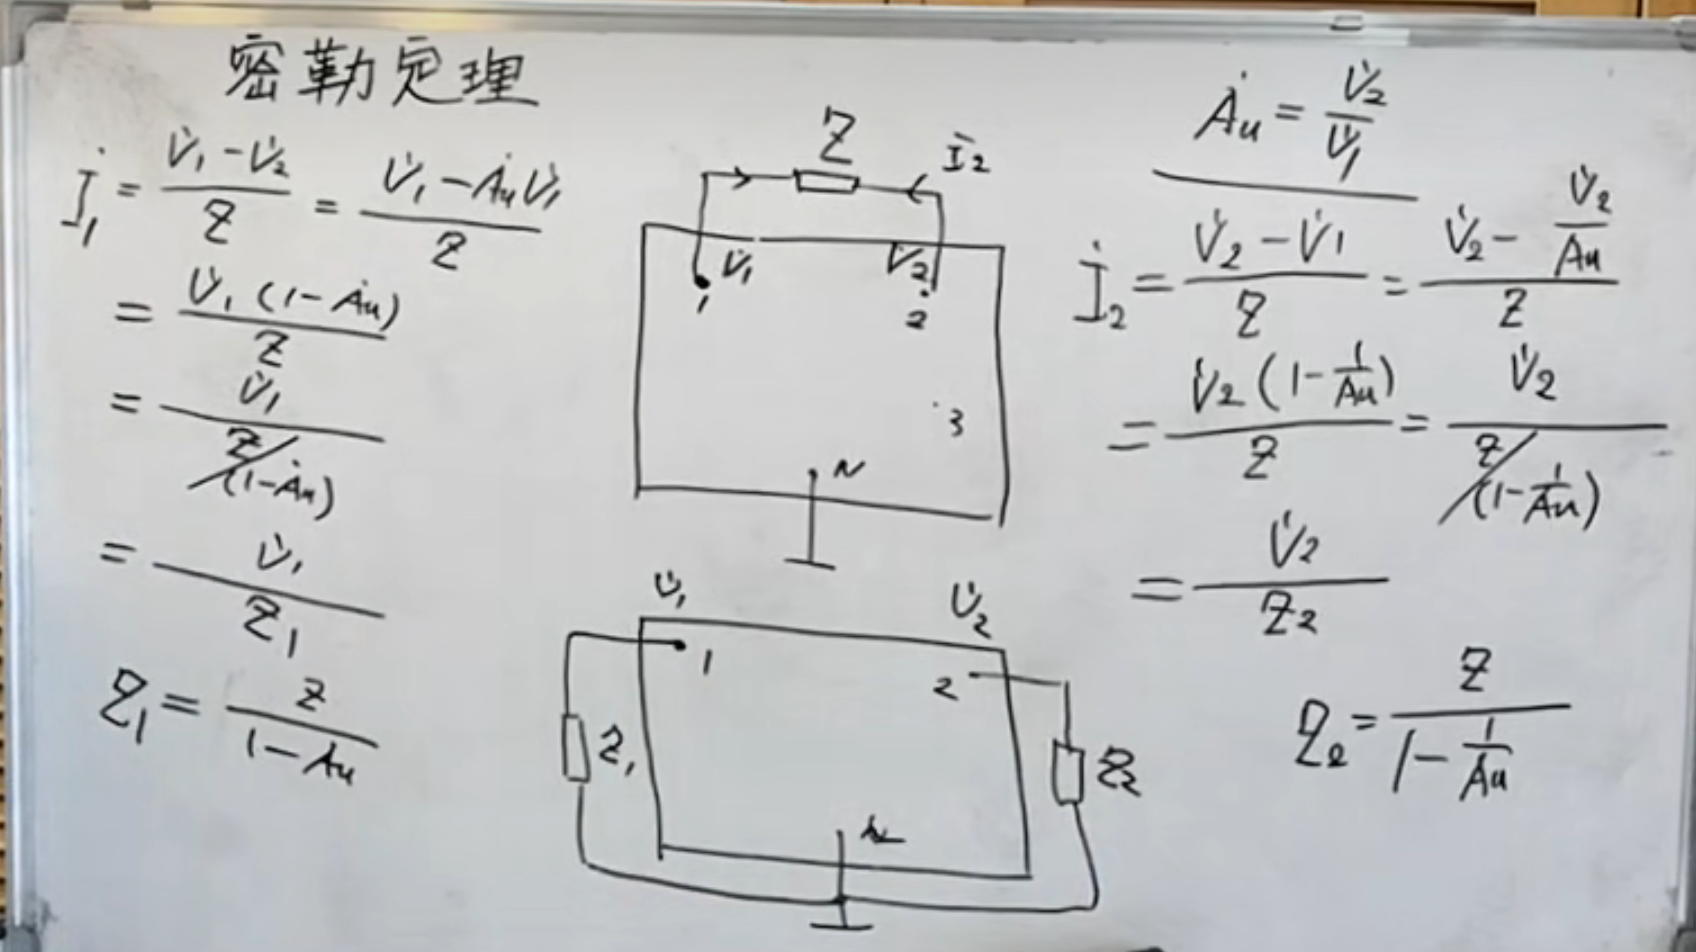 密勒定理
İ₁ = (V̇₁ - V̇₂)/Z = (V̇₁ - Ȧu V̇₁)/Z
= V̇₁(1 - Ȧu)/Z
= V̇₁/(Z/(1 - Ȧu))
= V̇₁/Z₁
Z₁ = Z/(1 - Ȧu)
Z
İ₂
V̇₁
V̇₂
1
2
3
N
V̇₁
V̇₂
1
2
Z₁
Z₂
N
Ȧu = V̇₂/V̇₁
İ₂ = (V̇₂ - V̇₁)/Z = (V̇₂ - V̇₂/Ȧu)/Z
= V̇₂(1 - 1/Ȧu)/Z = V̇₂/(Z/(1 - 1/Ȧu))
= V̇₂/Z₂
Z₂ = Z/(1 - 1/Ȧu)